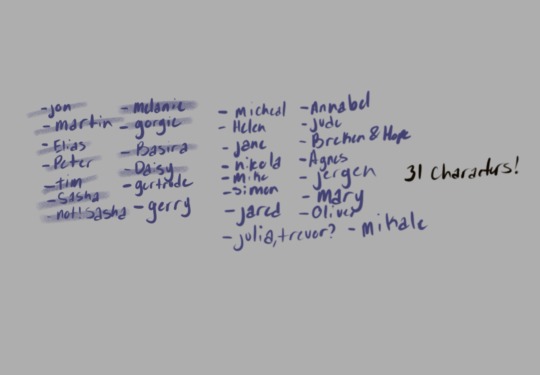 -jon
-martin
-Elias
-Peter
-tim
-Sasha
-not!Sasha
-melanie
-gorgie
-Basira
-Daisy
-gertrude
-gerry
-micheal
-Helen
-jane
-nikola
-mike
-Simon
-jared
-julia, trevor?
-Annabel
-Jude
-Breken & Hope
-Agnes
-jergen
-mary
-Oliver
-mikale
31 Characters!